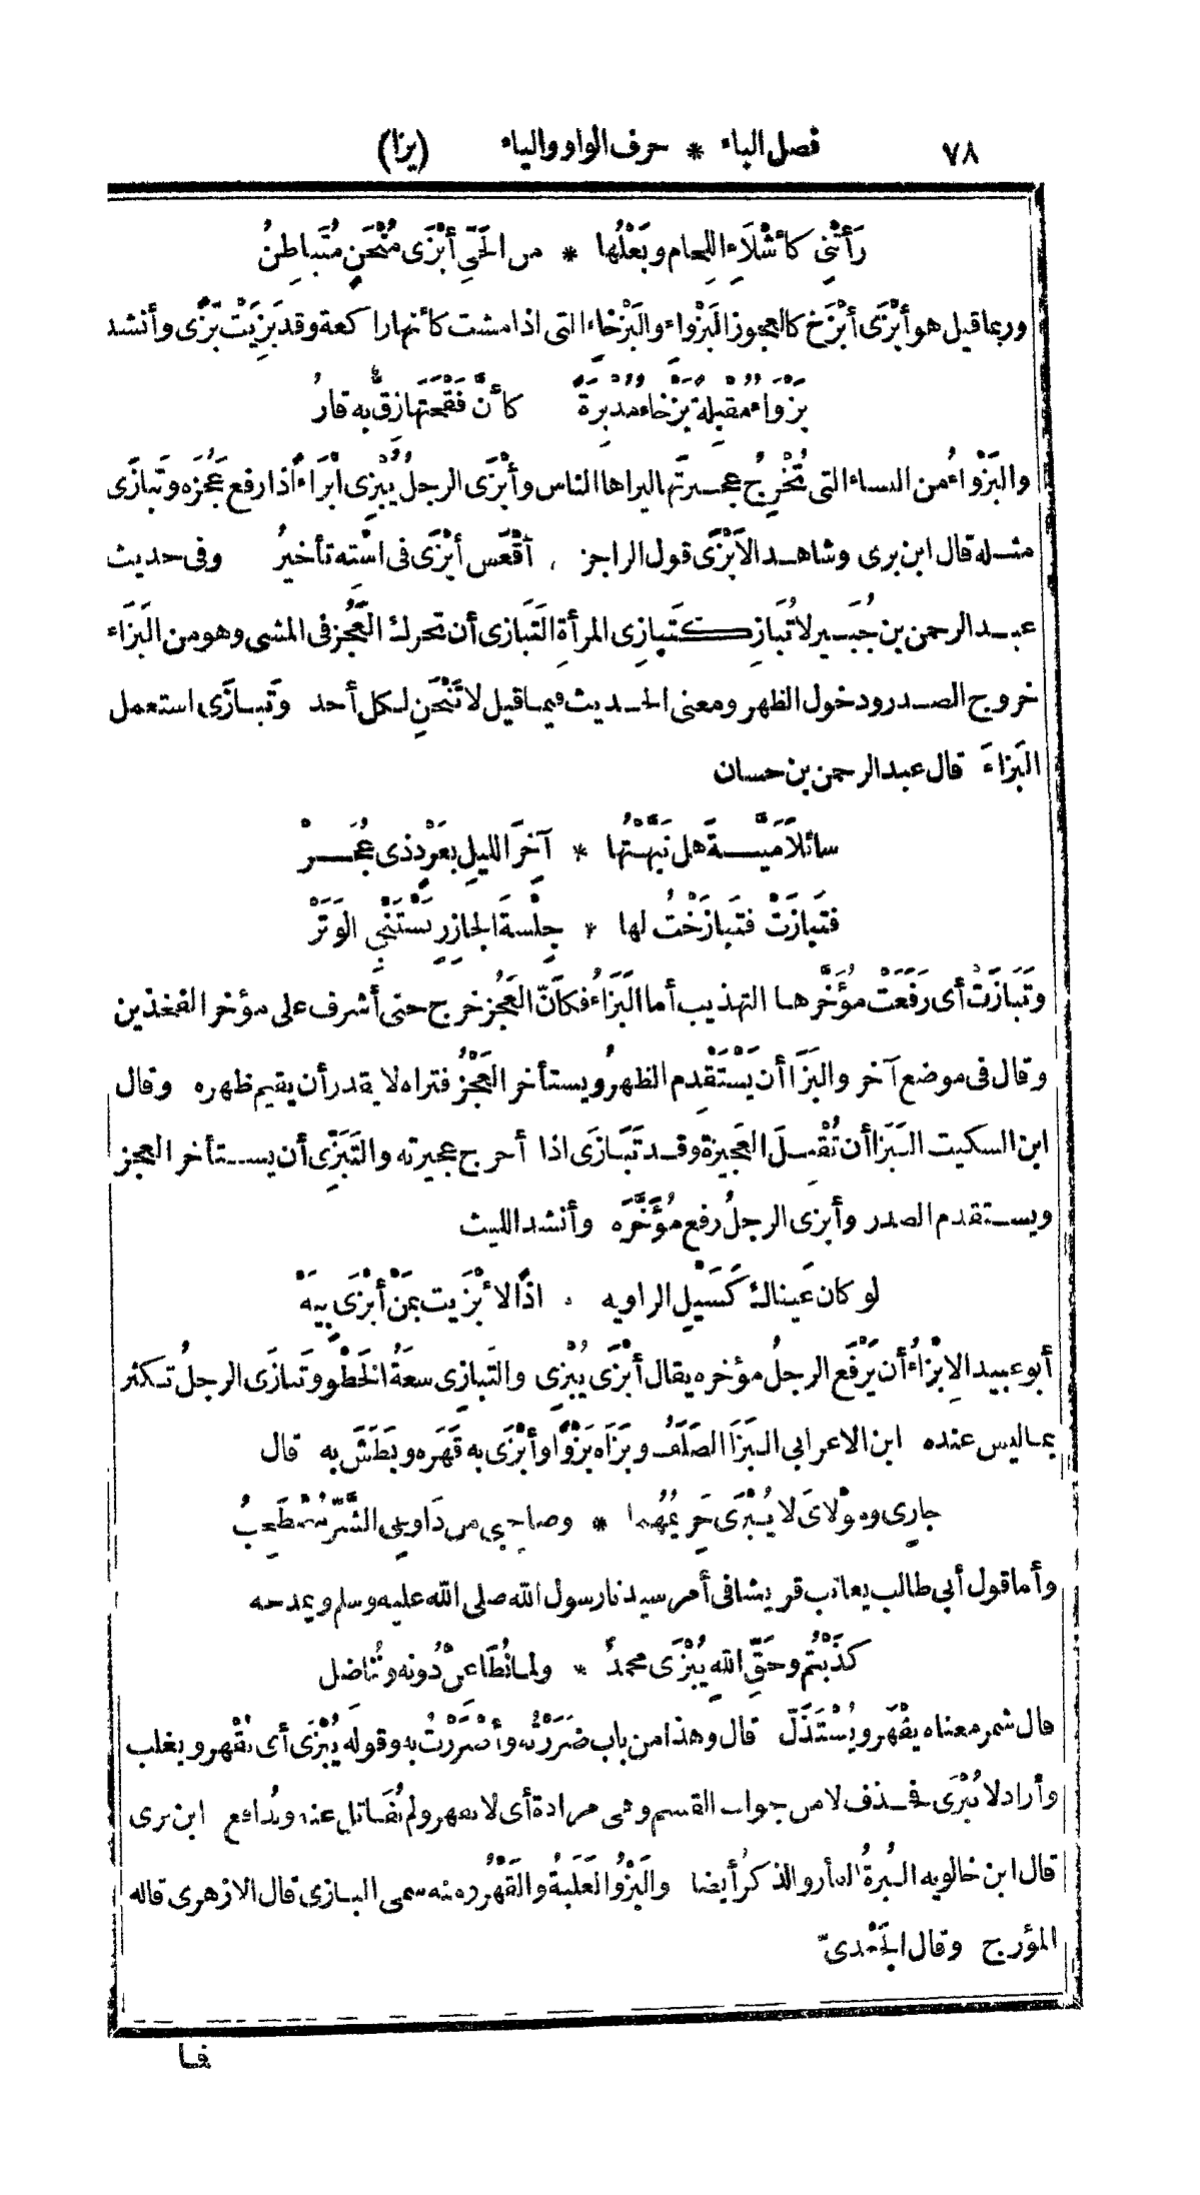 ٧٨ فصل الباء * حرف الواو والياء (بزا)
رَأَتْنِي كأَشْلاءِ اللِّجام وبَعْلُها * من الحَيِّ أَبْزَى مُنْحَنٍ مُتَباطِنُ
وربما قيل هو أَبْزَى أَبْزَخ كالعجوز البَزْواءِ والبَزْخاءِ التى اذا مشت كأنها راكعة وقد بَزِيَتْ بَزًى وأنشد
بَزْواءُ مقْبِلةً بَزْخاءُ مدْبِرةً كأَنَّ فَقْحَتَها زِقٌّ به قارُ
والبَزْواءُ من النساء التى تُخْرِجُ عجيزتَها ليراها الناس وأَبْزَى الرجلُ يُبْزِى إبْزاءً اذا رفع عَجُزَه وتَبازَى
مثله قال ابن برى وشاهد الأَبْزَى قول الراجز . أَقْعَس أَبْزَى فى اسْتِه تأخيرُ وفى حديث
عبد الرحمن بن جُبَير لا تُبَازِ كتَبازِى المرأةِ التَبَازى أن تحرك العَجُز فى المشى وهو من البَزَاء
خروج الصدر ودخول الظهر ومعنى الحديث فيما قيل لا تَنْحَنِ لكل أحد وتَبازَى استعمل
البَزاءَ قال عبد الرحمن بن حسان
سائلا مَيَّةَ هل نَبَّهْتُها * آخِرَ الليلِ بعَرْدٍ ذى عُجَرْ
فتَبازَتْ فتَبازَخْتُ لها * جِلْسةَ الجازِرِ يَسْتَنْجِى الوَتَرْ
وتَبازَتْ أى رَفَعَتْ مؤَخَّرها التهذيب أما البَزَاءُ فكأَنّ العَجُز خرج حتى أشرف على مؤخر الفخذين
وقال فى موضع آخر والبَزَا أن يَسْتَقْدِم الظهرُ ويستأخر العَجُزُ فتراه لا يقدر أن يقيم ظهره وقال
ابن السكيت البَزَا أن تُقْبِلَ العَجِيزة وقد تَبَازَى اذا أخرج عجيزته والتَبَزِّى أن يستأخر العجز
ويستقدم الصدر وأبزى الرجلُ رفع مُؤَخَّرَه وأنشد الليث
لو كان عَيناك كَسَيْلِ الراويه . اذًا لأَبْزَيت بمَنْ أَبْزَى بِيَهْ
أبو عبيد الإِبْزاءُ أن يَرْفَع الرجلُ مؤخره يقال أَبْزَى يُبْزِى والتَبازِى سعَةُ الخَطْو وتَبازَى الرجلُ تكثر
بما ليس عنده ابن الاعرابي البَزَا الصَلَفُ وبَزَاه بَزْوًا وأَبْزَى به قَهَره وبَطَشَ به قال
جارِى ومَوْلاىَ لا يُبْزَى حَرِيمُهما * وصاحِبِى من دَاوعِى الشَّرِّ مُصْطَحِبُ
وأما قول أبي طالب يعاتب قريشا فى أمر سيدنا رسول الله صلى الله عليه وسلم ويمدحه
كذَبْتُم وحَقِّ اللهِ يُبْزَى محمدٌ * ولما نُطَاعِنْ دُونه ونُناضل
قال شمر معناه يقْهَر ويُسْتَذَلّ قال وهذا من باب ضَرَرْتُه وأَضْرَرْتُ به وقوله يُبْزَى أى يُقْهر ويغلب
وأراد لا يُبْزَى فحذف لا من جواب القسم وهى مرادة أى لا يقهر ولم نُقاتل عنه وندافع ابن برى
قال ابن خالويه البُزةُ الفأر والذكرُ أيضا والبَزْوُ الغَلَبةُ والقَهْرُ ومنه سمى البازى قال الازهرى قاله
المؤرج وقال الجَعْدىّ
فا